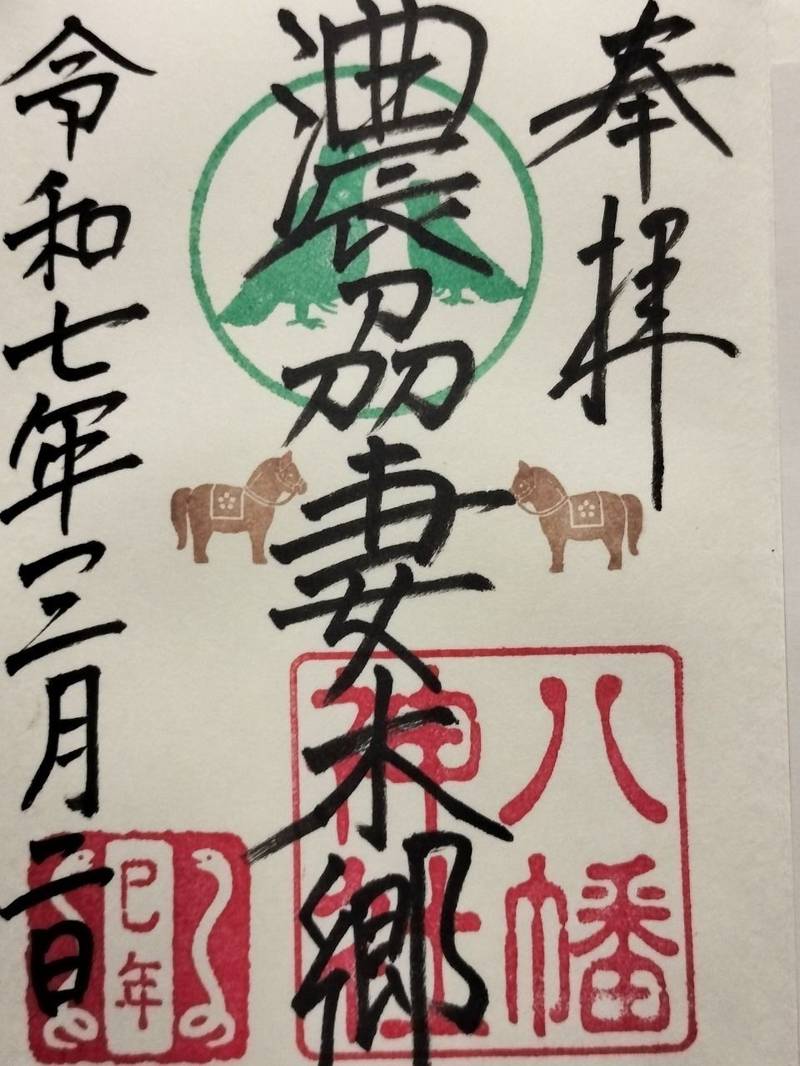 奉拝
濃刕妻木郷
八幡
神社
令和七年三月二日
巳年